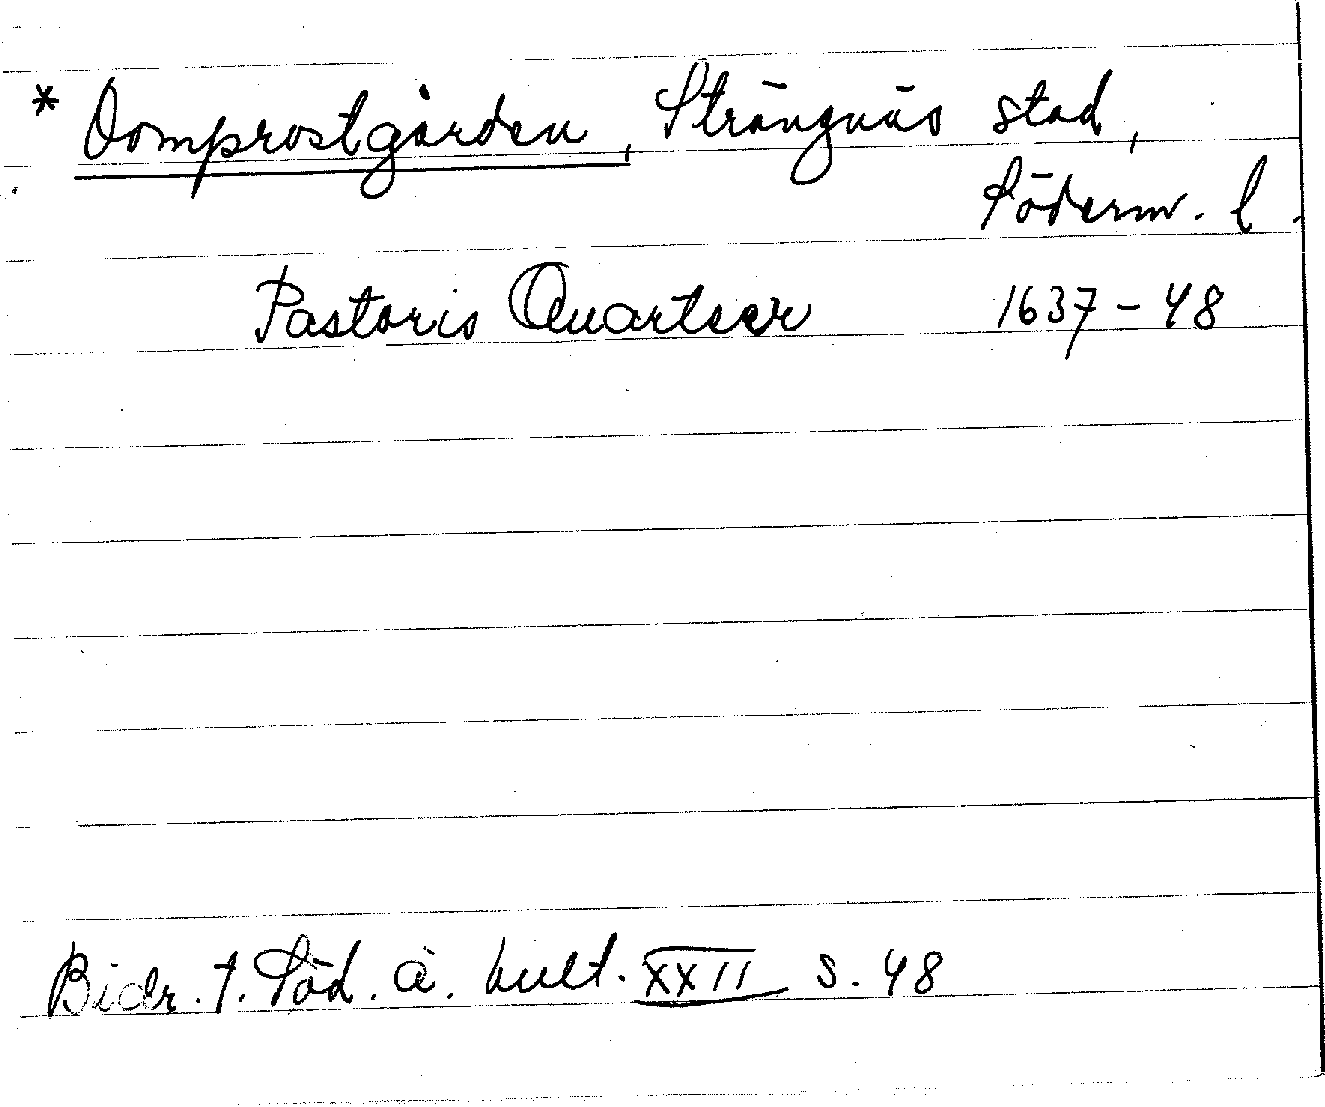 * Domprostgården, Strängnäs stad,
Söderm. l.
Pastoris Quarteer 1637-48
Bidr. t. Söd. ä. kult. XXII s. 48